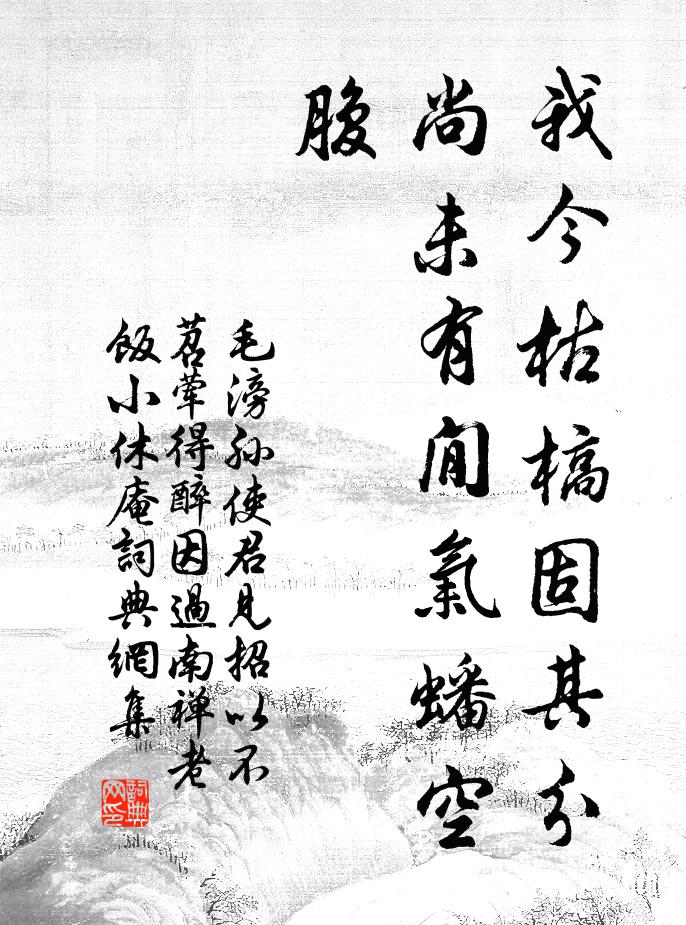 我今枯槁固其分
尚未有閒氣蟠空
腹
毛滂孙使君見招以不
茹葷得醉因過南禅老
飯小休庵詞典網集
詞典
网印